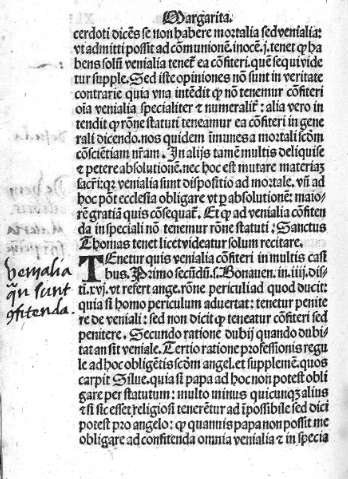 Margarita.
cerdoti dicẽs se non habere mortalia sed venialia: vt
vt admitti possit ad cõmunionẽ. inocẽ. j. tenet ꝙ ha
bens solũ venialia tenet̃ ea cõfiteri. que sequi vide
tur supple. Sed iste opiniones nõ sunt in veritate
contrarie quia vna intẽdit ꝙ nõ tenemur cõfiteri
oĩa venialia specialiter ⁊ numeralit̃: alia vero in
tendit ꝙ rõne statuti teneamur ea cõfiteri in gene
rali dicendo. nos quidem ĩmunes a mortali scd̃m
cõsciẽtiam nr̃am. In alijs tamẽ multis deliquisse
⁊ petere absolutionẽ. nec hoc est mutare materiaz
sacr̃i: qꝛ venialia sunt dispositio ad mortale. vñ ad
hoc põt ecclesia obligare vt ꝑ absolutionẽ: maio-
rẽ gratiã quis cõsequat̃. Et ꝙ ad venialia cõfitenda
da in speciali nõ tenemur rõne statuti: Sanctus
Thomas tenet licet videatur solum recitare.
TEnetur quis venialia cõfiteri in multis casi
bus. Primo secũdũ. s. Bonauen. in. iiij. disti.
xvj. vt refert ange. rõne periculi ad quod ducit:
quia si homo periculum aduertat: tenetur penite
re de veniali: sed non dicit ꝙ teneatur cõfiteri sed
penitere. Secundo ratione dubij quando dubi-
tat an sit veniale. Tertio ratione professionis regu
le ad hoc obligẽtis scd̃m angel. et supplemẽ. quos
carpit Silue. quia si papa ad hoc non potest obli
gare per statutum: multo minus quicunqꝫ alius
⁊ si sic esset religiosi tenerẽtur ad ĩpossibile sed dici
potest pro angelo: ꝙ quamuis papa non possit me
obligare ad confitenda omnia venialia ⁊ in specia
venialia
qñ sunt
ꝯfitenda.